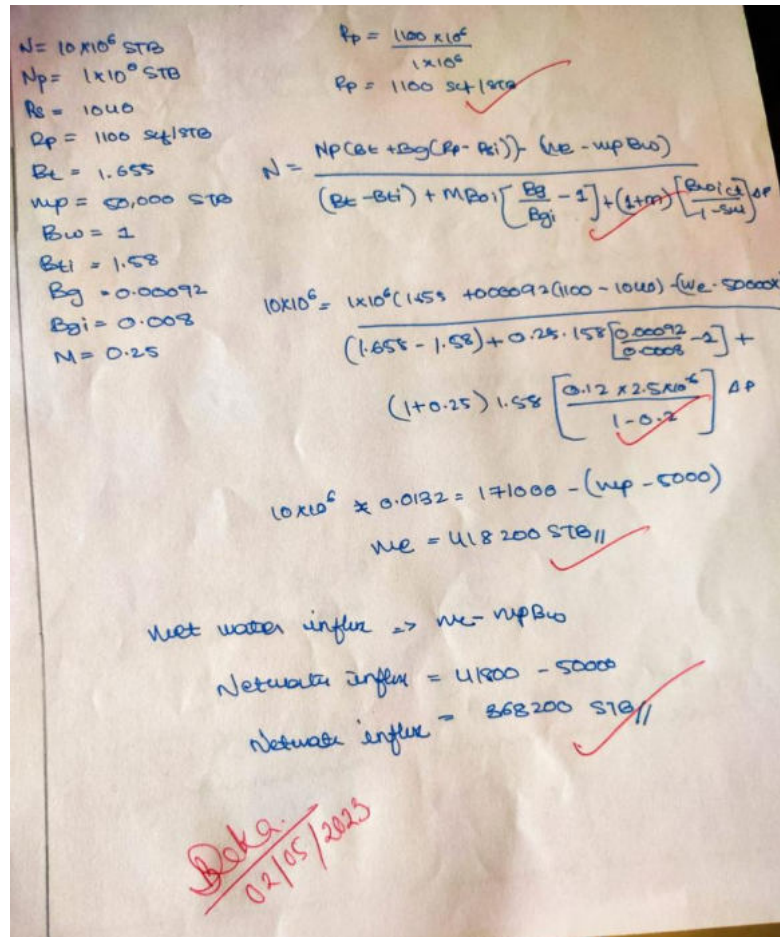 N= 10 x10⁶ STB
Np= 1x10⁶ STB
Rs = 1040
Rp = 1100 scf/STB
Bt = 1.655
wp = 50,000 STB
Bw = 1
Bti = 1.58
Bg = 0.00092
Bgi = 0.008
M= 0.25
Rp = 1100 x10⁶ / 1x10⁶
Rp = 1100 scf/STB
N = NP(Bt +Bg(Rp- Rsi)}- (we - wpBw) / (Bt-Bti) + MBoi[Bg/Bgi - 1]+(1+m)[Bwoict/1-sw]ΔP
10x10⁶ = 1x10⁶(1655 +000092(1100 - 1040) -(we - 50000x
(1.655 - 1.58)+0.25.158[0.00092/0.0008 -1] +
(1+0.25) 1.58 [0.12 x 2.5x10⁻⁶ / 1-0.2] ΔP
10x10⁶ x 0.0132= 171000 -(wp - 5000)
we = 418200 STB//
Net water influx => we- wpBw
Netwate influx = 41800 - 50000
Netwate influx = 368200 STB//
02/05/2023